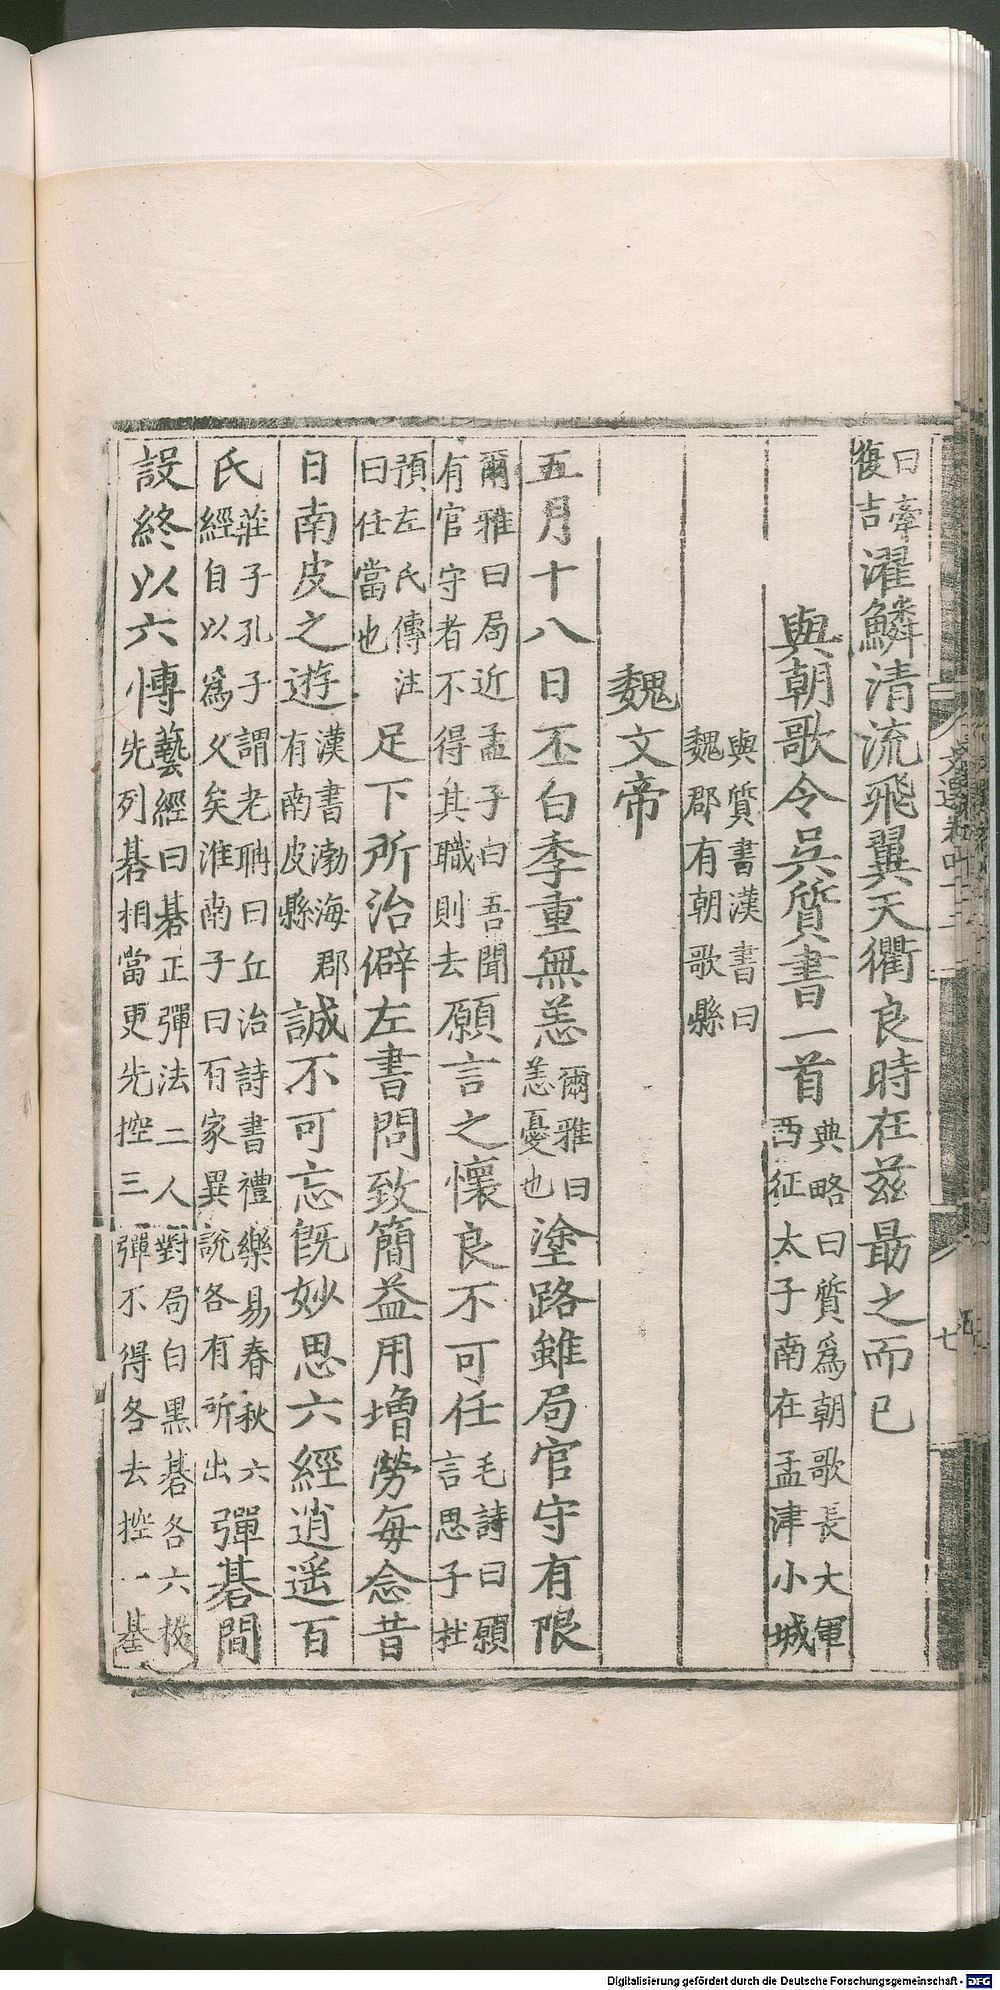 曰牽復吉濯鱗清流飛翼天衢良時在茲勗之而已
與朝歌令吳質書一首典略曰質爲朝歌長大軍西征太子南在孟津小城
與質書漢書曰魏郡有朝歌縣
魏文帝
五月十八日丕白季重無恙爾雅曰恙憂也塗路雖局官守有限
爾雅曰局近孟子曰吾聞有官守者不得其職則去願言之懷良不可任毛詩曰願言思子杜
預左氏傳注曰任當也足下所治僻左書問致簡益用增勞每念昔
日南皮之遊漢書渤海郡有南皮縣誠不可忘旣妙思六經逍遥百
氏莊子孔子謂老聃曰丘治詩書禮樂易春秋六經自以爲久矣淮南子曰百家異說各有所出彈碁間
設終以六博藝經曰碁正彈法二人對局白黑碁各六枚先列碁相當更先控三彈不得各去控一碁
文選卷四十二
七
Digitalisierung gefördert durch die Deutsche Forschungsgemeinschaft - DFG